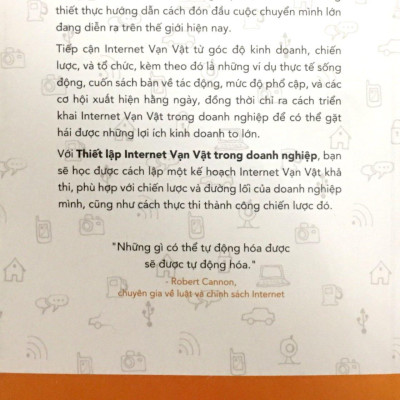 thiết thực hướng dẫn cách đón đầu cuộc chuyển mình lớn
đang diễn ra trên thế giới hiện nay.
Tiếp cận Internet Vạn Vật từ góc độ kinh doanh, chiến
lược, và tổ chức, kèm theo đó là những ví dụ thực tế sống
động, cuốn sách bàn về tác động, mức độ phổ cập, và các
cơ hội xuất hiện hằng ngày, đồng thời chỉ ra cách triển
khai Internet Vạn Vật trong doanh nghiệp để có thể gặt
hái được những lợi ích kinh doanh to lớn.
Với Thiết lập Internet Vạn Vật trong doanh nghiệp, bạn
sẽ học được cách lập một kế hoạch Internet Vạn Vật khả
thi, phù hợp với chiến lược và đường lối của doanh nghiệp
mình, cũng như cách thực thi thành công chiến lược đó.
"Những gì có thể tự động hóa được
sẽ được tự động hóa."
- Robert Cannon,
chuyên gia về luật và chính sách Internet